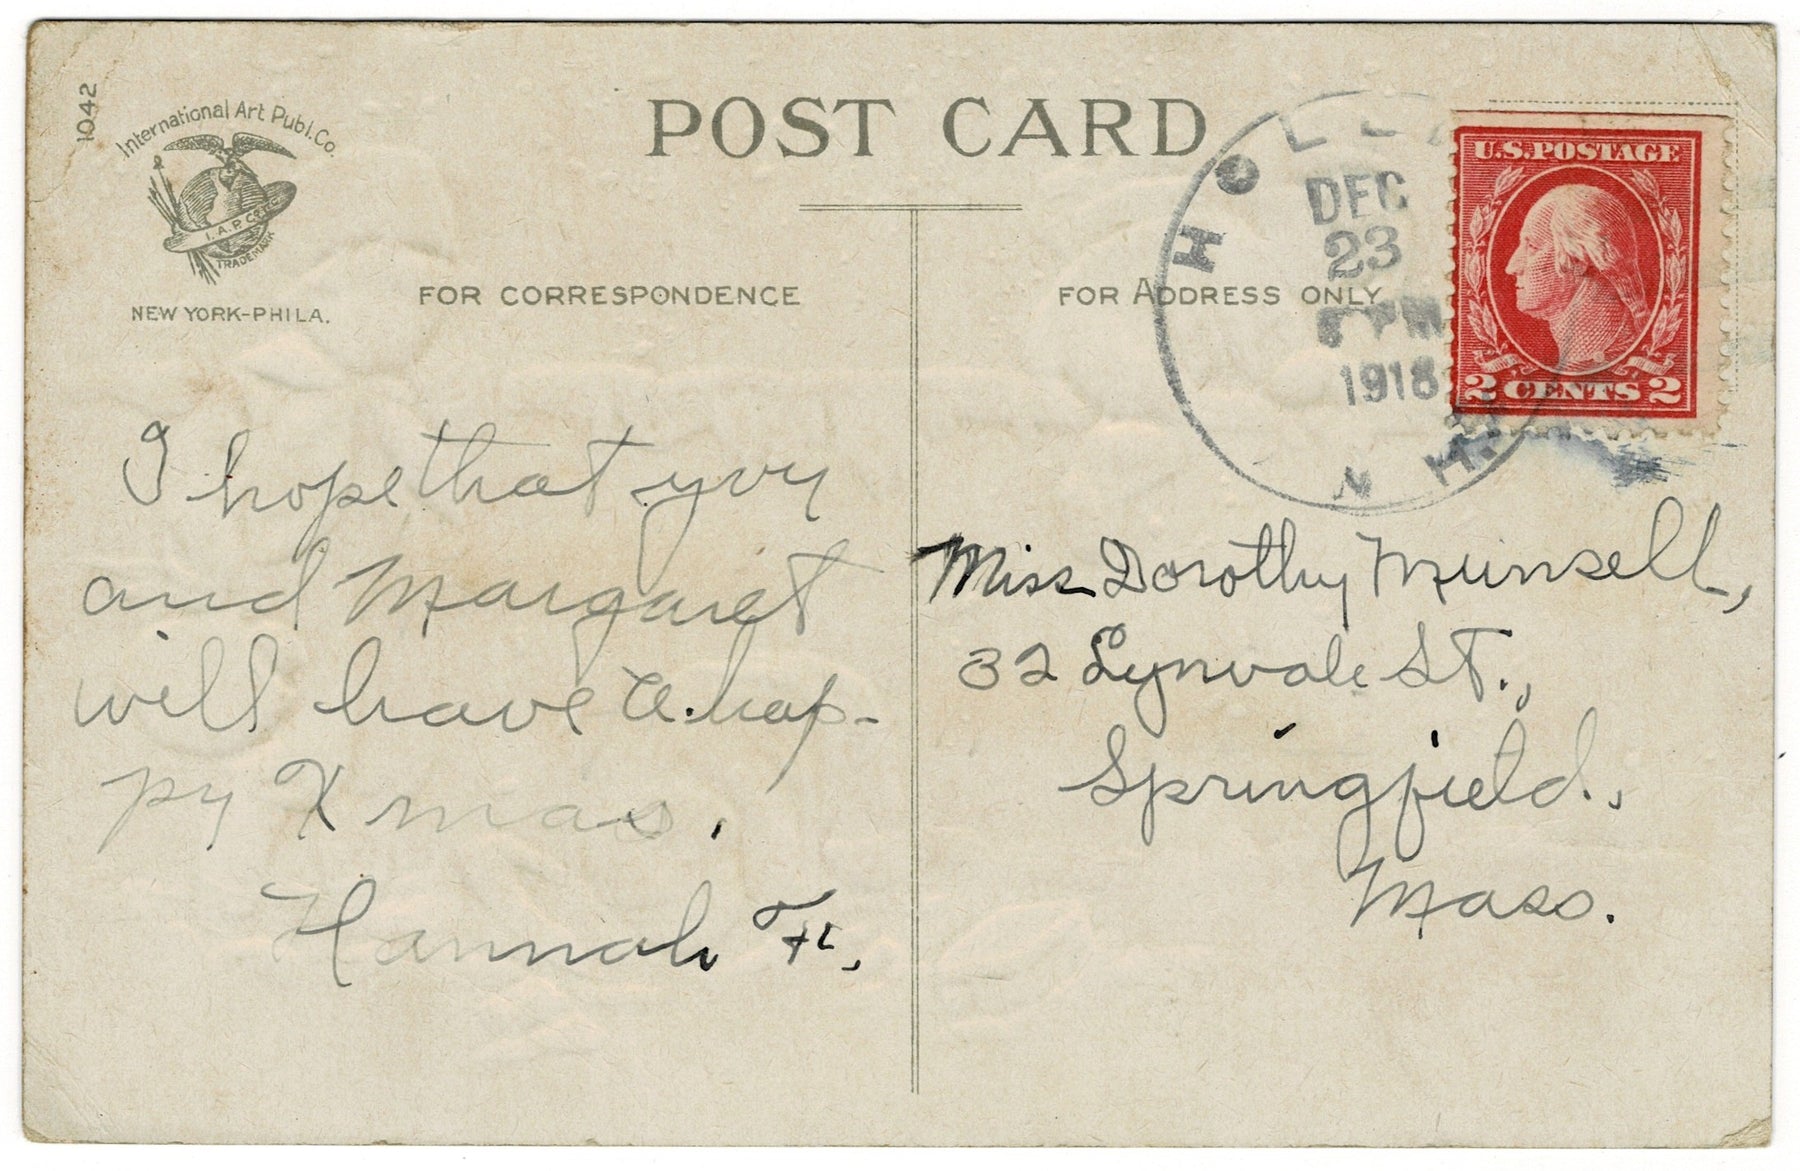 1042
International Art Publ. Co.
I. A. P. Co.
TRADEMARK
NEW YORK-PHILA.
POST CARD
FOR CORRESPONDENCE
FOR ADDRESS ONLY
HOLLIS
DEC
23
6 PM
1918
N.H.
U.S.POSTAGE
2 CENTS 2
I hope that you
and Margaret
will have a hap-
py Xmas.
Hannah F.,
Miss Dorothy Munsell,
32 Lynvale St.,
Springfield.,
Mass.